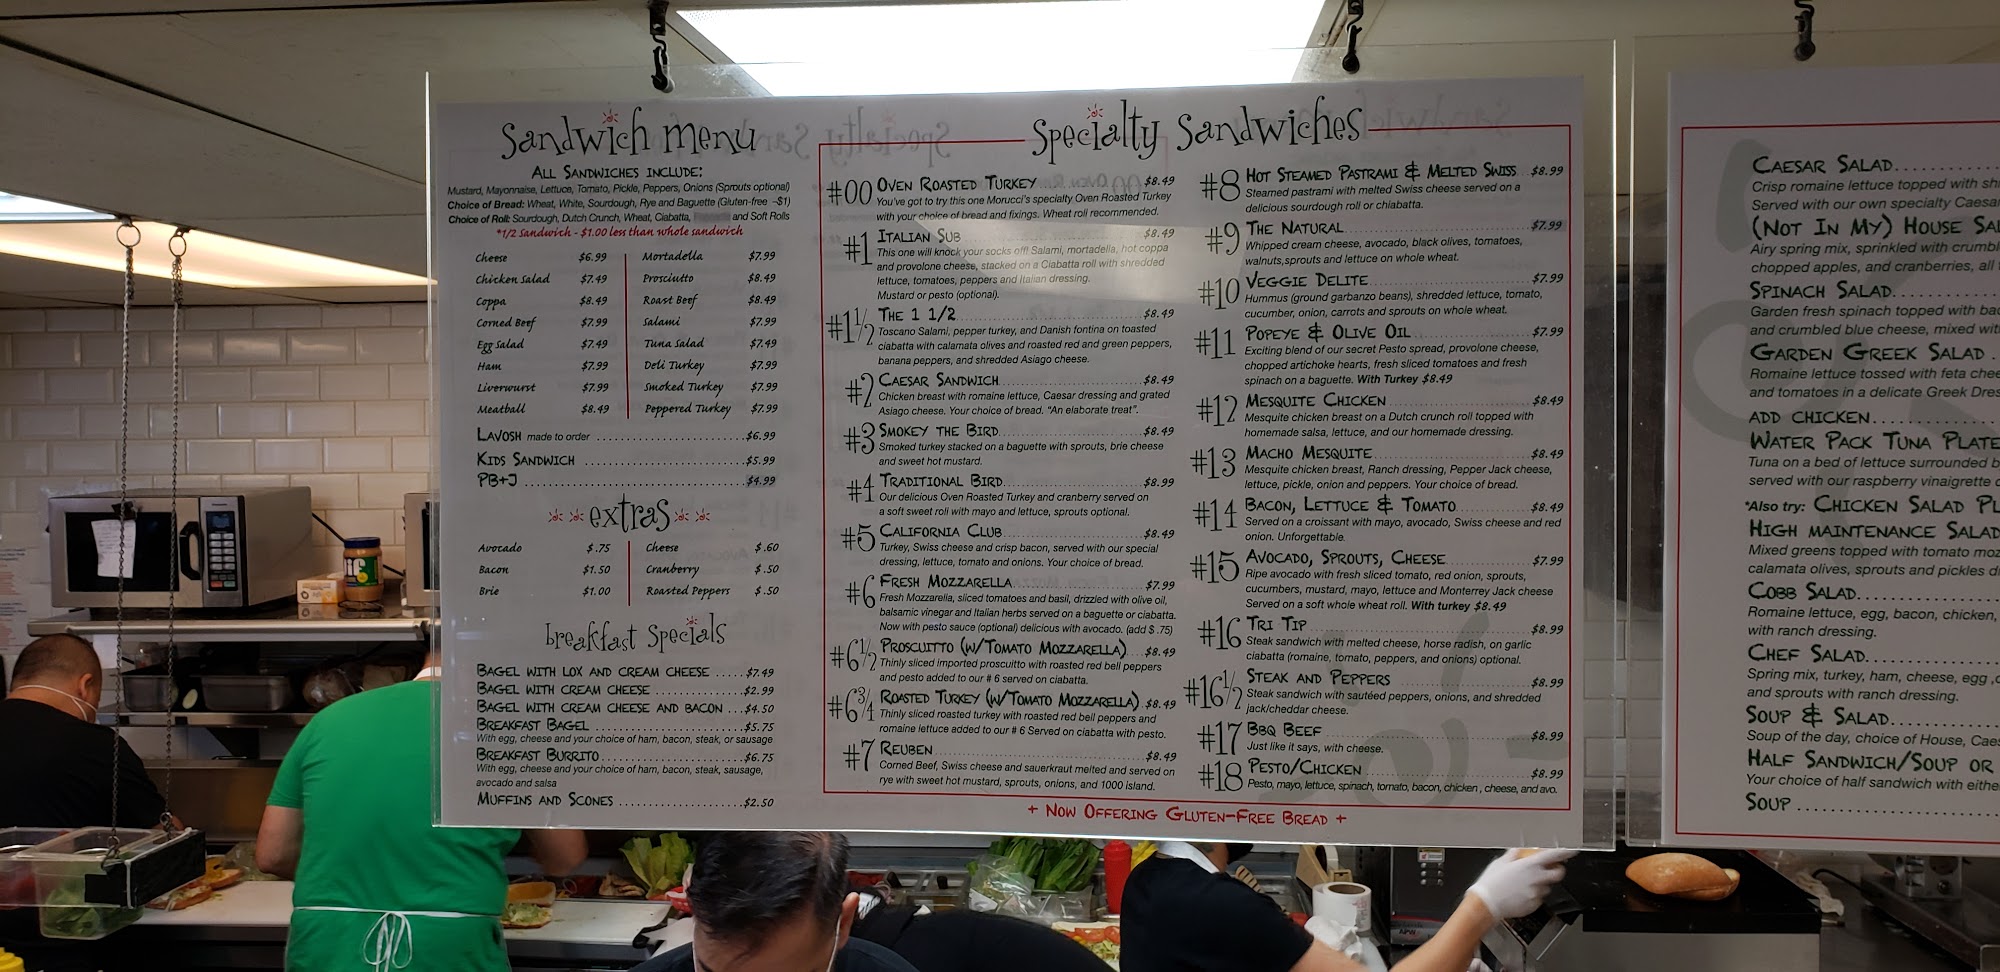 Sandwich menu
ALL SANDWICHES INCLUDE:
Mustard, Mayonnaise, Lettuce, Tomato, Pickle, Peppers, Onions (Sprouts optional)
Choice of Bread: Wheat, White, Sourdough, Rye and Baguette (Gluten-free ~$1)
Choice of Roll: Sourdough, Dutch Crunch, Wheat, Ciabatta, and Soft Rolls
*1/2 Sandwich - $1.00 less than whole sandwich
Cheese $6.99
Chicken Salad $7.49
Coppa $8.49
Corned Beef $7.99
Egg Salad $7.49
Ham $7.99
Liverwurst $7.99
Meatball $8.49
Mortadella $7.99
Prosciutto $8.49
Roast Beef $8.49
Salami $7.99
Tuna Salad $7.49
Deli Turkey $7.99
Smoked Turkey $7.99
Peppered Turkey $7.99
LAVOSH made to order $6.99
KIDS SANDWICH $5.99
PB+J $4.99
extras
Avocado $.75
Bacon $1.50
Brie $1.00
Cheese $.60
Cranberry $.50
Roasted Peppers $.50
breakfast Specials
BAGEL WITH LOX AND CREAM CHEESE $7.49
BAGEL WITH CREAM CHEESE $2.99
BAGEL WITH CREAM CHEESE AND BACON $4.50
BREAKFAST BAGEL $5.75
With egg, cheese and your choice of ham, bacon, steak, or sausage
BREAKFAST BURRITO $6.75
With egg, cheese and your choice of ham, bacon, steak, sausage,
avocado and salsa
MUFFINS AND SCONES $2.50
Specialty Sandwiches
#00 OVEN ROASTED TURKEY $8.49
You've got to try this one Morucci's specialty Oven Roasted Turkey
with your choice of bread and fixings. Wheat roll recommended.
#1 ITALIAN SUB $8.49
This one will knock your socks off! Salami, mortadella, hot coppa
and provolone cheese, stacked on a Ciabatta roll with shredded
lettuce, tomatoes, peppers and Italian dressing.
Mustard or pesto (optional).
#1 1/2 THE 1 1/2 $8.49
Toscano Salami, pepper turkey, and Danish fontina on toasted
ciabatta with calamata olives and roasted red and green peppers,
banana peppers, and shredded Asiago cheese.
#2 CAESAR SANDWICH $8.49
Chicken breast with romaine lettuce, Caesar dressing and grated
Asiago cheese. Your choice of bread. "An elaborate treat".
#3 SMOKEY THE BIRD $8.49
Smoked turkey stacked on a baguette with sprouts, brie cheese
and sweet hot mustard.
#4 TRADITIONAL BIRD $8.99
Our delicious Oven Roasted Turkey and cranberry served on
a soft sweet roll with mayo and lettuce, sprouts optional.
#5 CALIFORNIA CLUB $8.49
Turkey, Swiss cheese and crisp bacon, served with our special
dressing, lettuce, tomato and onions. Your choice of bread.
#6 FRESH MOZZARELLA $7.99
Fresh Mozzarella, sliced tomatoes and basil, drizzled with olive oil,
balsamic vinegar and Italian herbs served on a baguette or ciabatta.
Now with pesto sauce (optional) delicious with avocado. (add $.75)
#6 1/2 PROSCUITTO (W/TOMATO MOZZARELLA) $8.49
Thinly sliced imported proscuitto with roasted red bell peppers
and pesto added to our # 6 served on ciabatta.
#6 3/4 ROASTED TURKEY (W/TOMATO MOZZARELLA) $8.49
Thinly sliced roasted turkey with roasted red bell peppers and
romaine lettuce added to our # 6 Served on ciabatta with pesto.
#7 REUBEN $8.49
Corned Beef, Swiss cheese and sauerkraut melted and served on
rye with sweet hot mustard, sprouts, onions, and 1000 island.
#8 HOT STEAMED PASTRAMI & MELTED SWISS $8.99
Steamed pastrami with melted Swiss cheese served on a
delicious sourdough roll or chiabatta.
#9 THE NATURAL $7.99
Whipped cream cheese, avocado, black olives, tomatoes,
walnuts, sprouts and lettuce on whole wheat.
#10 VEGGIE DELITE $7.99
Hummus (ground garbanzo beans), shredded lettuce, tomato,
cucumber, onion, carrots and sprouts on whole wheat.
#11 POPEYE & OLIVE OIL $7.99
Exciting blend of our secret Pesto spread, provolone cheese,
chopped artichoke hearts, fresh sliced tomatoes and fresh
spinach on a baguette. With Turkey $8.49
#12 MESQUITE CHICKEN $8.49
Mesquite chicken breast on a Dutch crunch roll topped with
homemade salsa, lettuce, and our homemade dressing.
#13 MACHO MESQUITE $8.49
Mesquite chicken breast, Ranch dressing, Pepper Jack cheese,
lettuce, pickle, onion and peppers. Your choice of bread.
#14 BACON, LETTUCE & TOMATO $8.49
Served on a croissant with mayo, avocado, Swiss cheese and red
onion. Unforgettable.
#15 AVOCADO, SPROUTS, CHEESE $7.99
Ripe avocado with fresh sliced tomato, red onion, sprouts,
cucumbers, mustard, mayo, lettuce and Monterrey Jack cheese
Served on a soft whole wheat roll. With turkey $8.49
#16 TRI TIP $8.99
Steak sandwich with melted cheese, horse radish, on garlic
ciabatta (romaine, tomato, peppers, and onions) optional.
#16 1/2 STEAK AND PEPPERS $8.99
Steak sandwich with sautéed peppers, onions, and shredded
jack/cheddar cheese.
#17 BBQ BEEF $8.99
Just like it says, with cheese.
#18 PESTO/CHICKEN $8.99
Pesto, mayo, lettuce, spinach, tomato, bacon, chicken, cheese, and avo.
+ NOW OFFERING GLUTEN-FREE BREAD +
CAESAR SALAD
Crisp romaine lettuce topped with
Served with our own specialty Caesa
(NOT IN MY) HOUSE SA
Airy spring mix, sprinkled with crumbl
chopped apples, and cranberries, all
SPINACH SALAD
Garden fresh spinach topped with
and crumbled blue cheese, mixed
GARDEN GREEK SALAD
Romaine lettuce tossed with feta
and tomatoes in a delicate Greek
ADD CHICKEN
WATER PACK TUNA PLATE
Tuna on a bed of lettuce surrounded
served with our raspberry vinaigrette
*Also try: CHICKEN SALAD PL
HIGH MAINTENANCE SALAD
Mixed greens topped with tomato
calamata olives, sprouts and pickles
COBB SALAD
Romaine lettuce, egg, bacon, chicken,
with ranch dressing.
CHEF SALAD
Spring mix, turkey, ham, cheese, egg,
and sprouts with ranch dressing.
SOUP & SALAD
Soup of the day, choice of House,
HALF SANDWICH/SOUP OR
Your choice of half sandwich with
SOUP